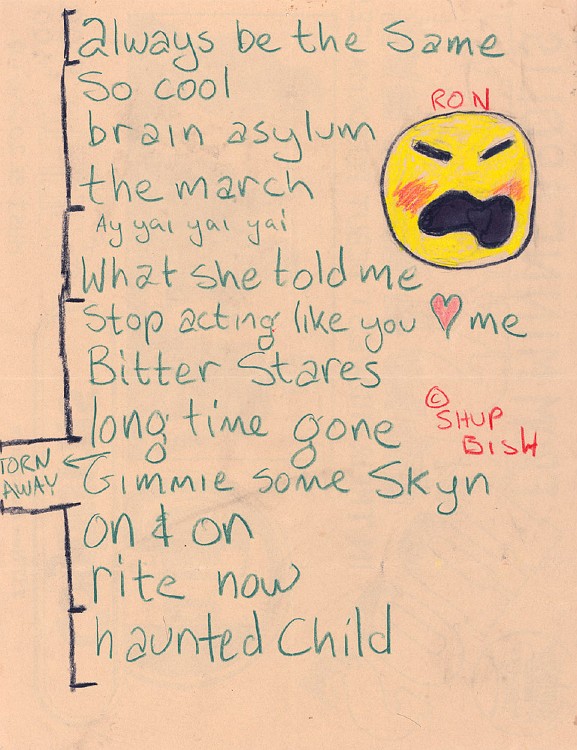 always be the Same
So cool
RON
brain asylum
the march
Ay yai yai yai
What she told me
Stop acting like you ♥ me
Bitter Stares
long time gone
© SHUP
BISH
TORN
AWAY
Gimmie some Skyn
on & on
rite now
haunted Child